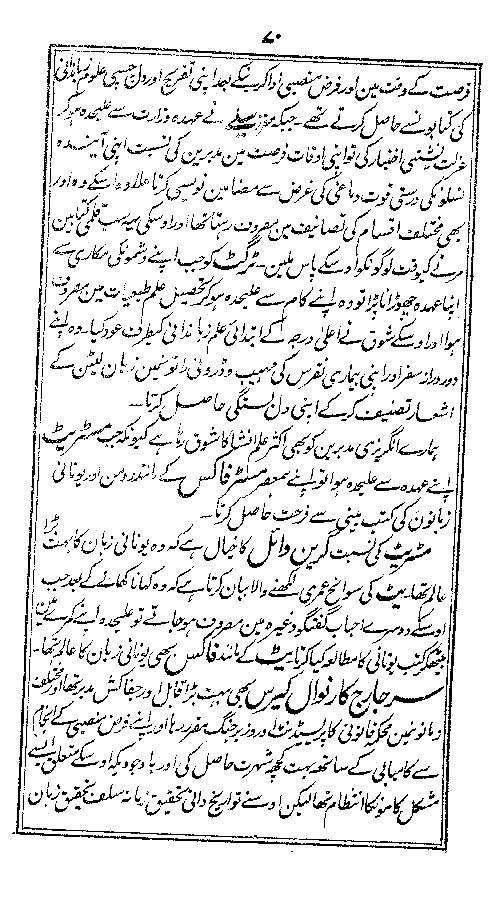 ۷۰
فرصت کے وقت مین اور فرض منصبی ادا کرنیکے بعد اپنی تفریح اور دل چسپی علوم زباندانی
کی کتابونسے حاصل کرتے تھے۔ جبکہ نے عہدہ وزارت سے علیحدہ ہوکر
عزلت نشینی اختیار کی تو اپنی اوقات فرصت مین مدبرین کی نسبت اپنی آیندہ
نسلونکی درستی قوت دماغی کی غرض سے مضامین نویسی کرتا علاوہ اسکے وہ اور
بھی مختلف اقسام کی تصانیف مین مصروف رہتا تھا اور اوسکی بہت سی قلمی کتابین
مرنے کیوقت لوگونکو اوسکے پاس ملین۔ ٹرگٹ کو جب اپنے دشمنونکی مکاری سے
اپنا عہدہ چھوڑنا پڑا تو وہ اپنے کام سے علیحدہ ہو کر تحصیل علم طبعیات مین مصروف
ہوا اور اوسکے شوق نے اعلی درجہ کے ابتدائی علم زباندانی کیطرف عود کیا۔ وہ اپنے
دور دراز سفر اور اپنی بیماری نقرس کی مہیب و ڈرونی راتونمین زبان لیٹن کے
اشعار تصنیف کرکے اپنی دل بستگی حاصل کرتا۔
ہمارے انگریزی مدبرین کو بھی اکثر علم انشا کا شوق رہا ہے کیونکہ جب مسٹر پٹ
اپنے عہدہ سے علیحدہ ہوا تو اپنے ہمعصر مسٹر فاکس کے مانند رومن اور یونانی
زبانون کی کتب بینی سے فرحت حاصل کرتا۔
مسٹر پٹ کی نسبت گرین وائل کا خیال ہے کہ وہ یونانی زبان کا بہت بڑا
عالم تھا۔ پٹ کی سوانح عمری لکھنے والا بیان کرتا ہے کہ وہ کھانا کھانے کے بعد جب
اوسکے دوسرے احباب گفتگو وغیرہ مین مصروف ہو جاتے تو علیحدہ اپنے کمرے مین
بیٹھکر کتب یونانی کا مطالعہ کیا کرتا۔ پٹ کے مانند فاکس بھی یونانی زبان کا عالم تھا۔
سر جارج کارنوال لیوس بھی بہت بڑا قابل اور جفاکش مدبر تھا اور مختلف
زمانونمین محکمہ قانونی کا پریسیڈنٹ اور وزیر جنگ مقرر رہا اور اپنے فرض منصبی کے انجام
سے کامیابی کے ساتھ بہت کچھ شہرت حاصل کی اور باوجودیکہ اوسکے متعلق ایسے
مشکل کامونکا انتظام تھا لیکن اوسنے تواریخ دانی تحقیق زمانہ سلف تحقیق زبان